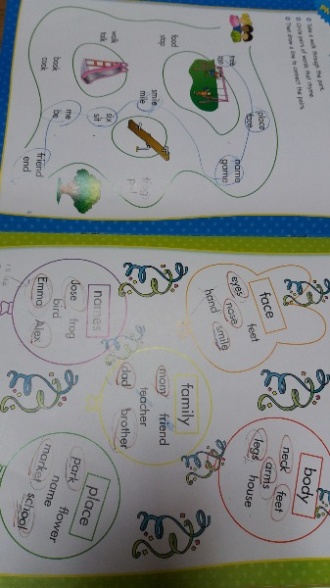 Take a walk through the park.
Circle pairs of words that rhyme.
Then draw a line to connect the pairs.
food
stop
walk
talk
book
cook
smile
mile
six
sit
me
be
friend
end
place
name
game
frog
face
eyes
feet
nose
hand
smile
body
neck
feet
arms
legs
house
family
mom
friend
teacher
dad
brother
names
Jose
frog
bird
Emma
Alex
place
park
flower
name
market
school